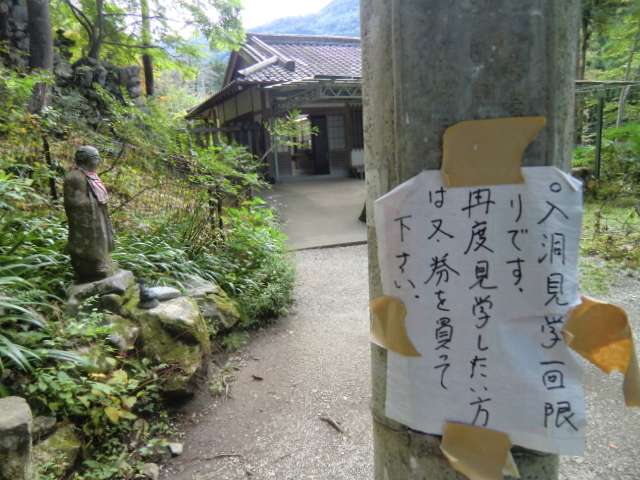 ○入洞見学一回限
りです、
再度見学したい方
は又、券を買って
下さい、